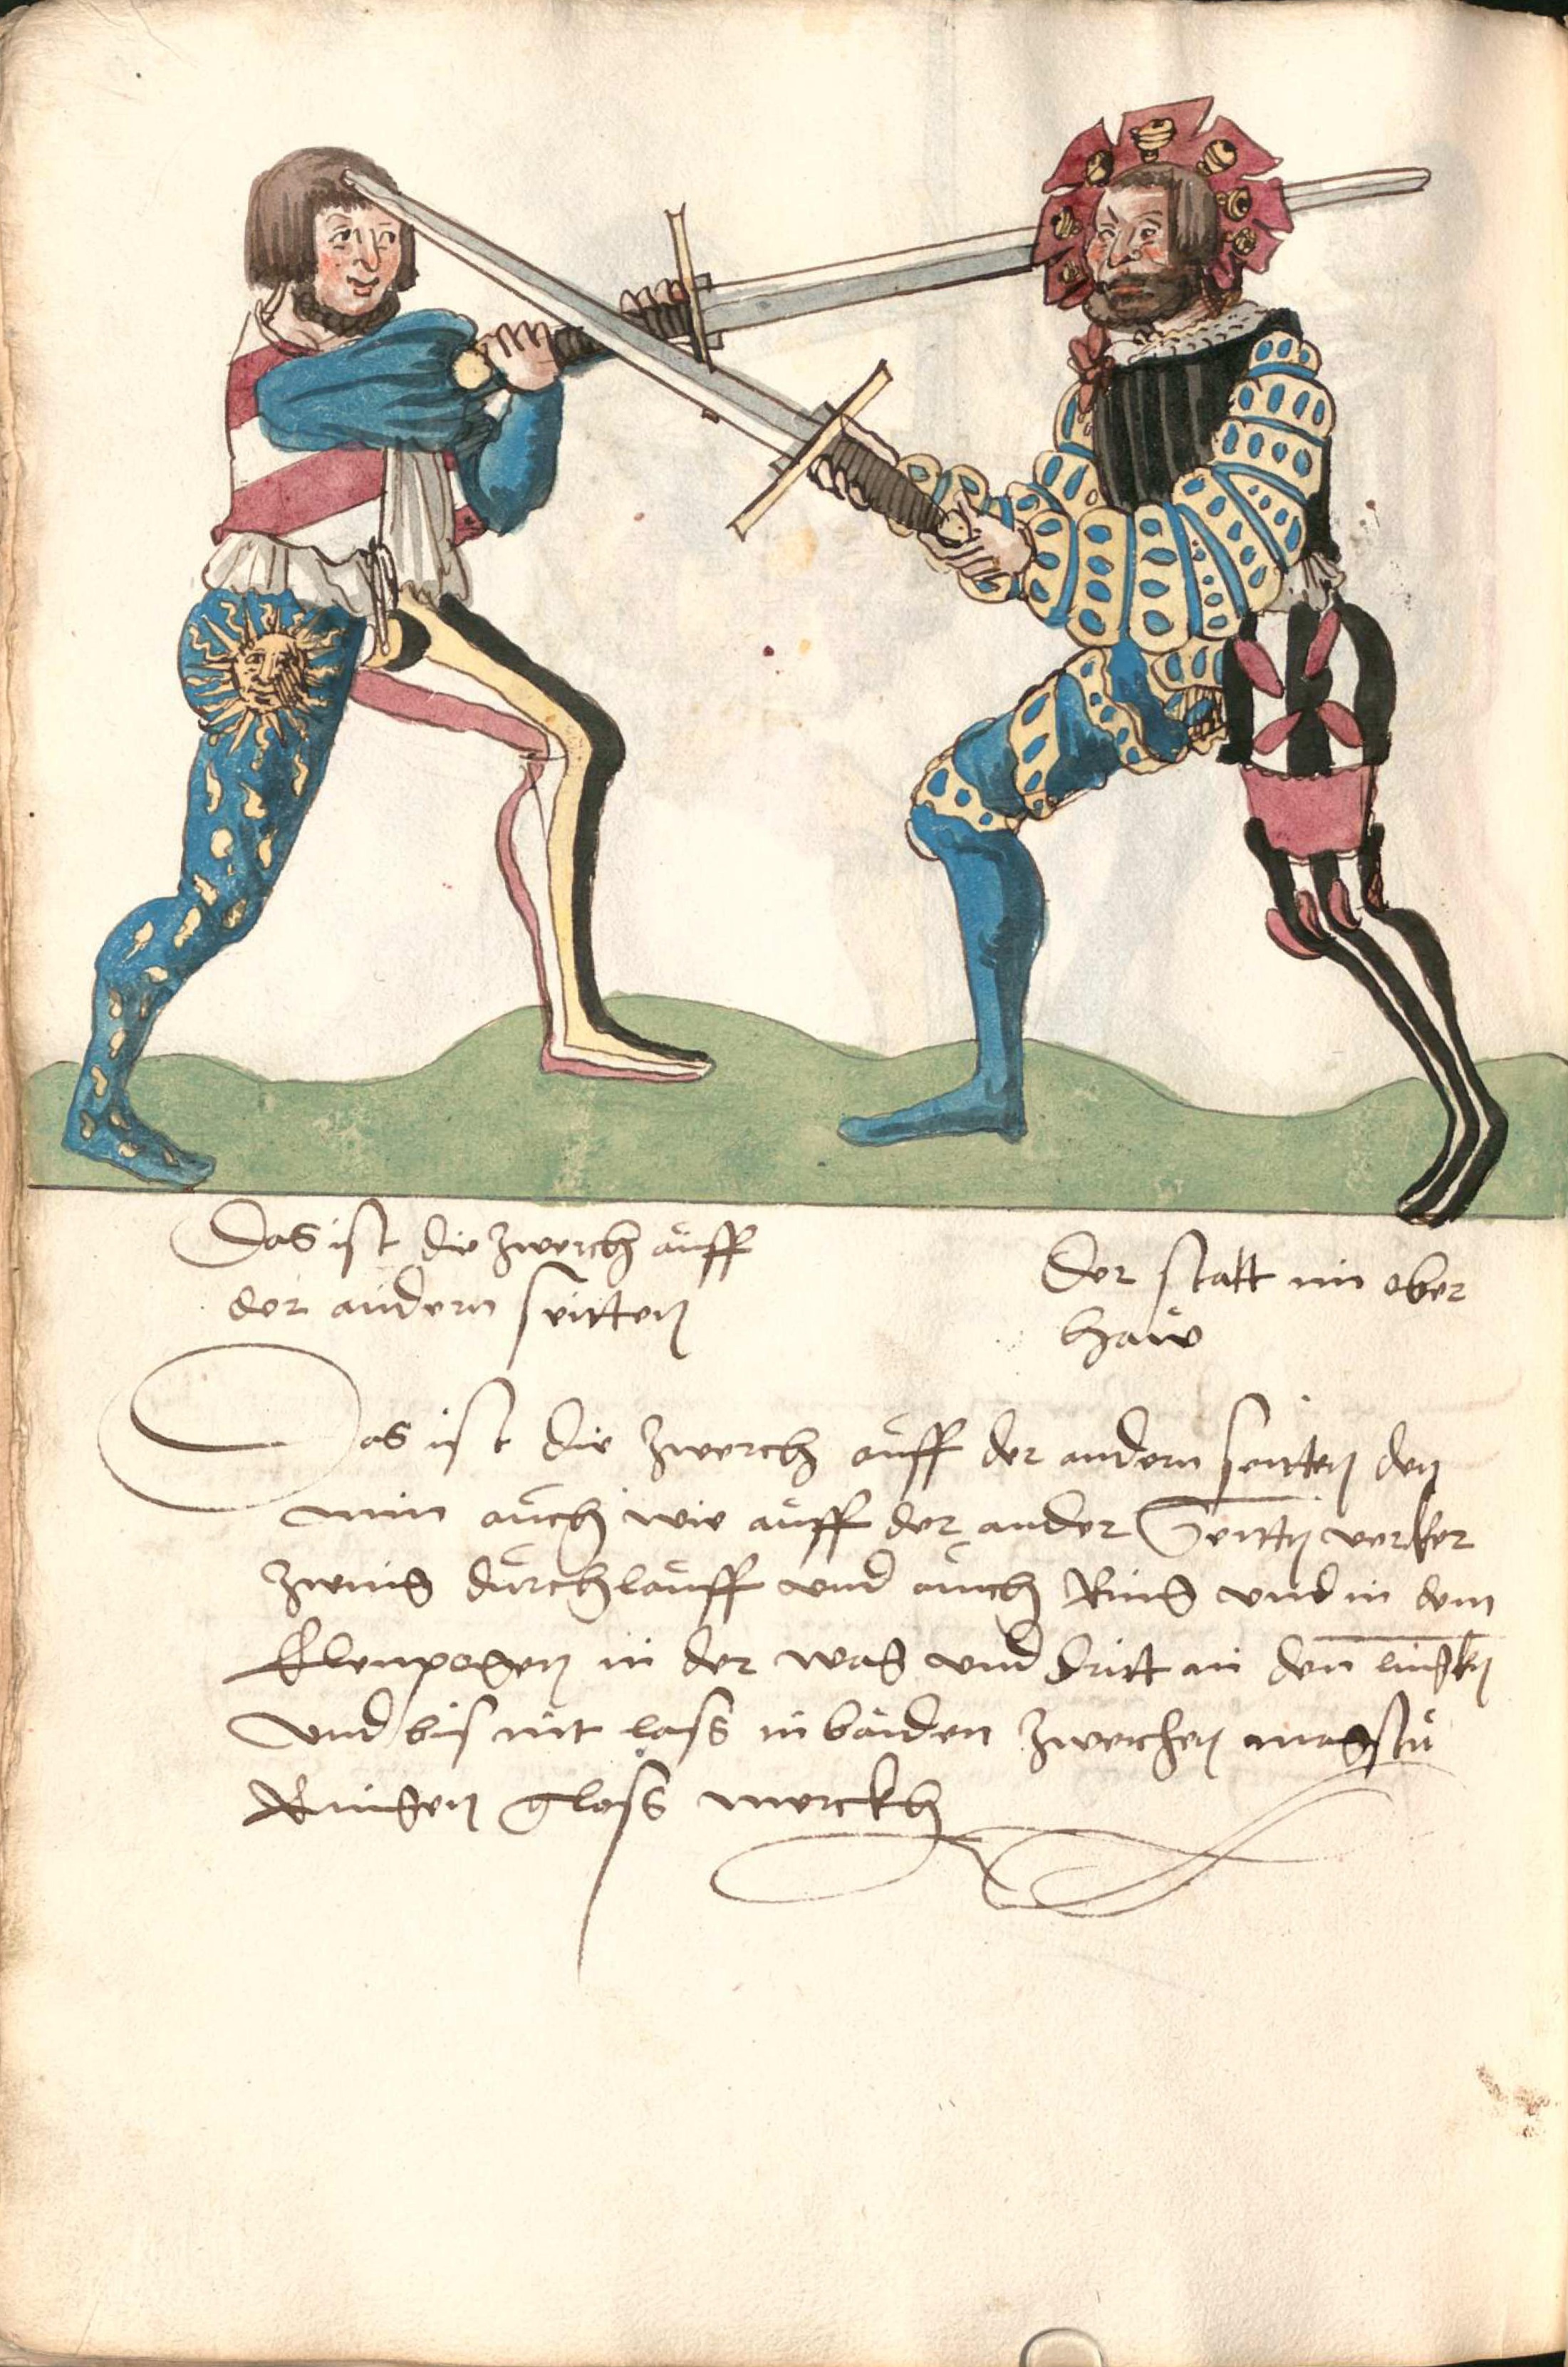 Das ist die zwerch aüff
der andern seitten
Der statt im ober
haw
Das ist die zwerch aüff der andern seitten den
nim aüch wie aüff der ander Seittn verker
zwing dürchlaüff vnd aüch Ring vnd in dem
Elenpogen in der wag vnd dritt an den lingkn
vnd bis nit lass in baiden zwerchen magstü
Ringen gloss merckh